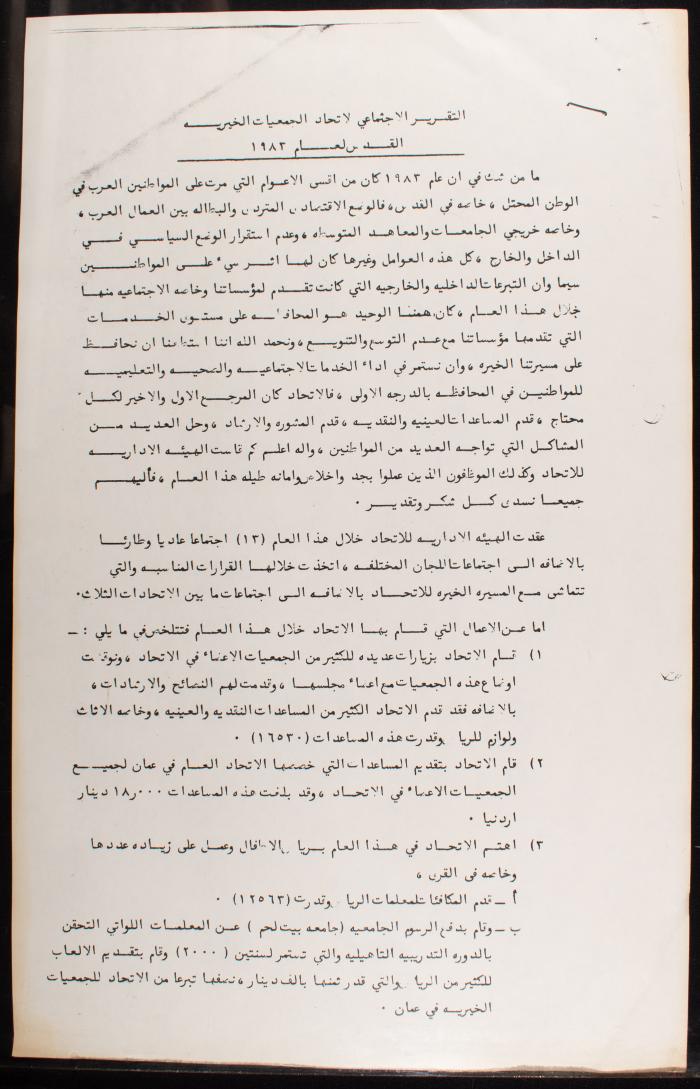 التقرير الاجتماعي لاتحاد الجمعيات الخيريه
القدس لعام ١٩٨٣
ما من شك في ان عام ١٩٨٣ كان من اقسى الاعوام التي مرت على المواطنين العرب في
الوطن المحتل ، خاصه في القدس، فالوضع الاقتصادى المتردى والبطاله بين العمال العرب ،
وخاصه خريجي الجامعات والمعاهد المتوسطه ، وعدم استقرار الوضع السياسي في
الداخل والخارج ، كل هذه العوامل وغيرها كان لها اثر سيء على المواطنين
سيما وان التبرعات الداخليه والخارجيه التي كانت تقدم لمؤسساتنا وخاصه الاجتماعيه منها
خلال هذا العام ، كان همنا الوحيد هو المحافظه على مستوى الخدمات
التي تقدمها مؤسساتنا مع عدم التوسع والتنويع ، ونحمد الله اننا استطعنا ان نحافظ
على مسيرتنا الخيره ، وان نستمر في اداء الخدمات الاجتماعيه والصحيه والتعليميه
للمواطنين في المحافظه بالدرجه الاولى ، فالاتحاد كان المرجع الاول والاخير لكل
محتاج ، قدم المساعدات العينيه والنقديه ، قدم المشوره والارشاد ، وحل العديد من
المشاكل التي تواجه العديد من المواطنين ، والله اعلم كم قاست الهيئه الاداريه
للاتحاد وكذلك الموظفون الذين عملوا بجد واخلاص وامانه طيله هذا العام ، فأليهم
جميعا نسدى كل شكر وتقدير .
عقدت الهيئه الاداريه للاتحاد خلال هذا العام (١٣) اجتماعا عاديا وطارئا
بالاضافه الى اجتماعات اللجان المختلفه ، اتخذت خلالها القرارات المناسبه والتي
تتماشى مع المسيره الخيره للاتحاد بالاضافه الى اجتماعات ما بين الاتحادات الثلاث.
اما عن الاعمال التي قام بها الاتحاد خلال هذا العام فتتلخص في ما يلي : ـ
١) قام الاتحاد بزيارات عديده للكثير من الجمعيات الاعضاء في الاتحاد ، ونوقشت
اوضاع هذه الجمعيات مع اعضاء مجلسها ، وقدمت لهم النصائح والارشادات ،
بالاضافه فقد قدم الاتحاد الكثير من المساعدات النقديه والعينيه ، وخاصه الاثاث
ولوازم للريا وقدرت هذه المساعدات (١٦٥٣٠) .
٢) قام الاتحاد بتقديم المساعدات التي خصصها الاتحاد العام في عمان لجميع
الجمعيات الاعضاء في الاتحاد ، وقد بلغت هذه المساعدات ١٨ر٠٠٠ دينار
اردنيا .
٣) اهتم الاتحاد في هذا العام بريا الاطفال وعمل على زياده عددها
وخاصه في القرى ،
أ ـ قدم المكافئات لمعلمات الريا وقدرت (١٢٥٦٣) .
ب ـ وقام بدفع الرسوم الجامعيه (جامعه بيت لحم ) عن المعلمات اللواتي التحقن
بالدوره التدريبيه التاهيليه والتي تستمر لسنتين (٢٠٠٠ ) وقام بتقديم الالعاب
للكثير من الريا والتي قدر ثمنها بالف دينار ، نصفها تبرعا من الاتحاد للجمعيات
الخيريه في عمان .